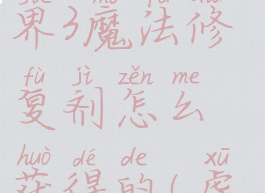 界3魔法修
fù jì zěn me
复剂怎么
huò dé de xū
获得的(虚